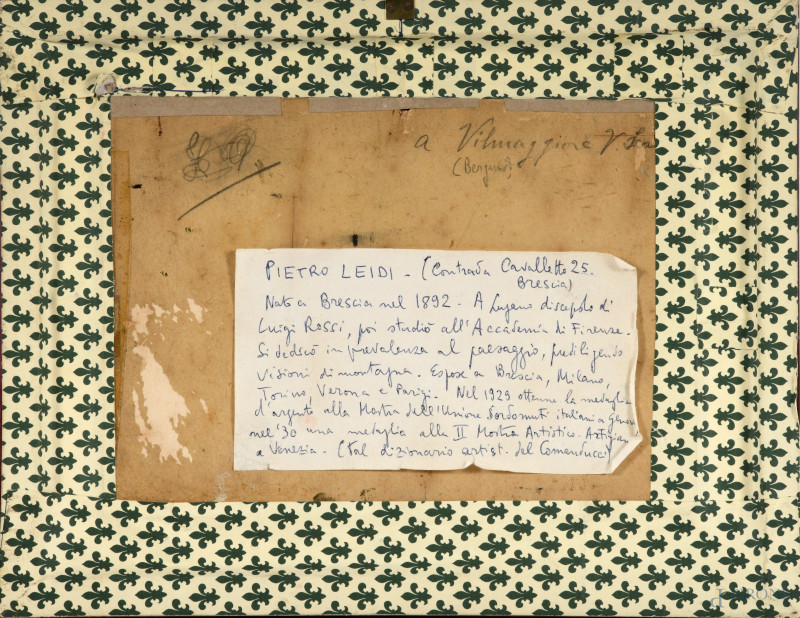 a Vilmaggiore
(Bergamo)
PIETRO LEIDI - (Contrada Cavalletto 25.
Brescia)
Nato a Brescia nel 1892 - A Lugano discepolo di
Luigi Rossi, poi studiò all'Accademia di Firenze.
Si dedicò in prevalenza al paesaggio, prediligendo
visioni di montagna. Espose a Brescia, Milano,
Torino, Verona e Parigi. Nel 1929 ottenne la medaglia
d'argento alla Mostra dell'Unione Sordomuti italiani a Genova
nel '30 una medaglia alla II Mostra Artistico-Artigiana
a Venezia. (Dal dizionario artist. del Comanducci